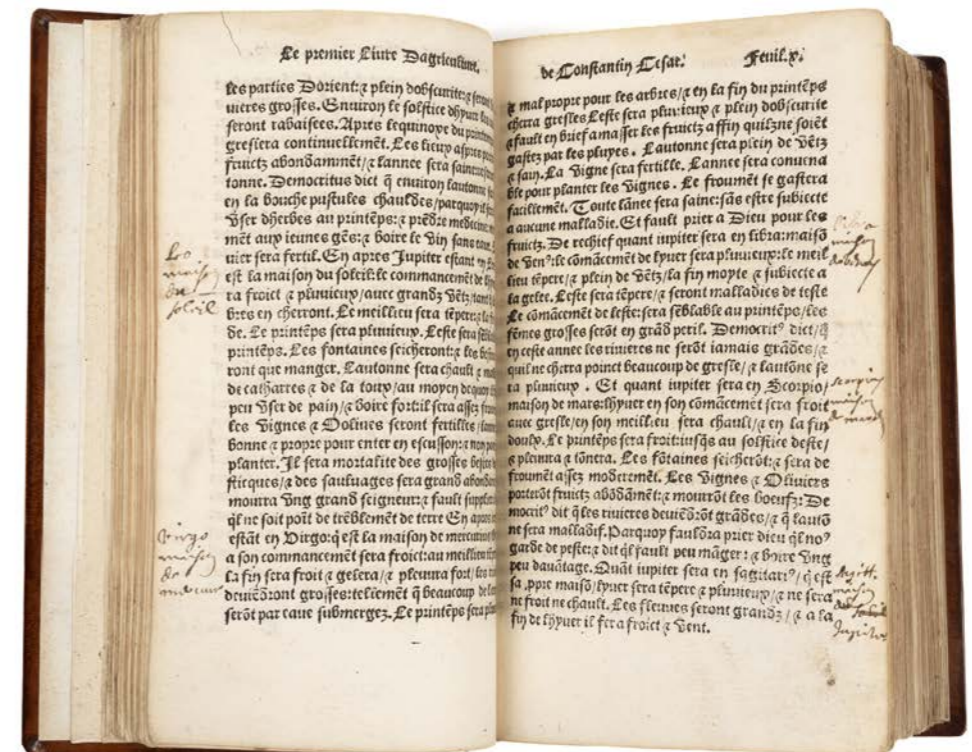 Le premier Liure Dagriculture.
les parties Dorient: ⁊ plein dobscurite: ⁊ seront
uieres grosses. Enuiron le solstice dhyuer
seront rabaisees. Apres lequinoxe du
greslera continuellemēt. Les lieux aspres
fruictz abondāmēt/⁊ lannee sera saine
tonne. Democritus dict q̄ enuiron lautonne
en la bouche pustules chauldes/parquoy il
vser dherbes au printēps: ⁊ prēdre medecine
mēt aux ieunes gēs: ⁊ boire le vin sans eaue.
uier sera fertil. En apres Jupiter estant en
est la maison du soleil: le commancemēt de
ra froict ⁊ pluuieux/auec grandz vētz/tant
bres en cherront. Le meillieu sera tēpere: ⁊ la
de. Le printēps sera pluuieux. Leste sera
printēps. Les fontaines seicheront: ⁊ les
ront que manger. Lautonne sera chault ⁊
de catharres ⁊ de la toux/au moyen dequoy
peu vser de pain/⁊ boire fort: il sera assez
les Vignes ⁊ Dolines seront fertilles/
bonne ⁊ propre pour enter en escusson: ⁊ non
planter. Il sera mortalite des grosses
sticques/⁊ des sauluages sera grand
mourra vng grand seigneur: ⁊ fault
ql̄ ne soit poīt de trēblemēt de terre En apres
estāt en Virgo: q̄ est la maison de mercure
a son commancemēt sera froict: au meillieu
La fin sera froit ⁊ gelera/⁊ pleuura fort/
deuiēdront grosses: tellemēt q̄ beaucoup de
serōt par eaue submergez. Le printēps sera
Leo
maison
du
soleil
Virgo
maison
de
mercure
de Constantin Cesar. Feuil.x.
⁊ mal propre pour les arbres/⁊ en la fin du printēps
cherra gresles Leste sera pluuieux ⁊ plein dobscurite
⁊ fault en brief amasser les fruictz affin quilzne soiēt
gastez par les pluyes. Lautonne sera plein de vētz
⁊ sain. La vigne sera fertille. Lannee sera conuena
ble pour planter les vignes. Le froumēt se gastera
facillemēt. Toute lānee sera saine: sās estre subiecte
a aucune malladie. Et fault prier a Dieu pour les
fruictz. De rechief quant iupiter sera en libra: maisō
de Ven⁹: le cōmācemēt de lyuer sera pluuieux: le meil
lieu tēpere/⁊ plein de vētz/la fin moyte ⁊ subiecte a
la gelee. Leste sera tēpere/⁊ seront malladies de teste
Le cōmācemēt de leste: sera sēblable au printēps/les
fēmes grosses serōt en grād peril. Democrit⁹ dict/q̄
en ceste annee les riuieres ne serōt iamais grādes/⁊
quil ne cherra poinct beaucoup de gresle/⁊ lautōne se
ra pluuieux. Et quant iupiter sera en Scorpio/
maison de mars: lhyuer en son cōmācemēt sera froit
auec gresle/en son meillieu sera chault/⁊ en la fin
doulx. Le printēps sera froit: iusq̄s au solstice deste/
⁊ pleuura ⁊ tōnera. Les fōtaines seicherōt: ⁊ sera de
froumēt assez moderemēt. Les vignes ⁊ Oliuiers
porterōt fruictz abōdāmēt: ⁊ mourrōt les boeufz: De
mocrit⁹ dit q̄ les riuieres deuiēdrōt grādes/⁊ q̄ lautō
ne sera malladif. Parquoy fauldra prier dieu ql̄ no⁹
garde de peste: ⁊ dit ql̄ fault peu māger: ⁊ boire vng
peu dauātage. Quāt iupiter sera en sagitari⁹/q̄ est
sa ꝓpre maisō/lyuer sera tēpere ⁊ pluuieux/⁊ ne sera
ne froit ne chault. Les fleuues seront grandz/⁊ a la
fin de lhyuer il fera froict ⁊ vent.
maison
scorpius
maison
de mars
Sagitt.
maison
Jupiter